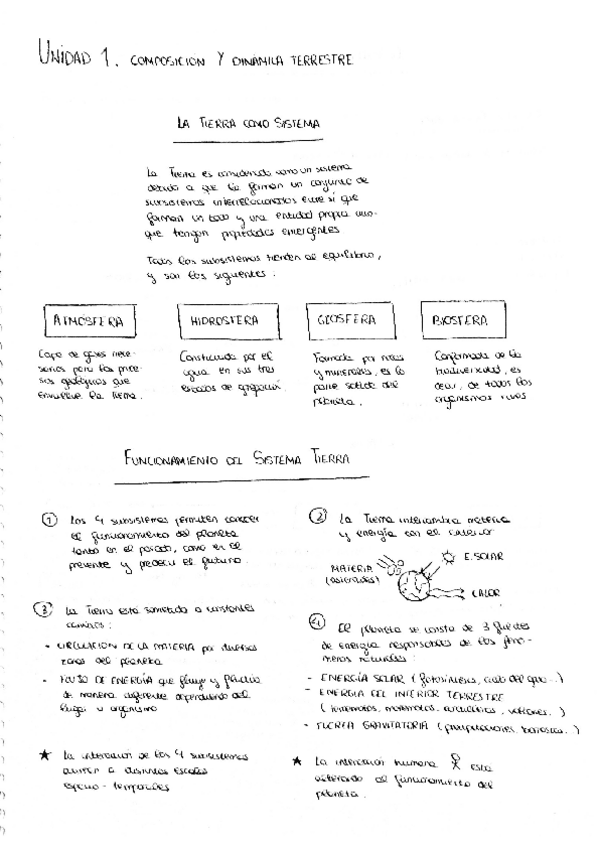 UNIDAD 1. COMPOSICIÓN Y DINÁMICA TERRESTRE
LA TIERRA COMO SISTEMA
La Tierra es considerada como un sistema
debido a que la forman un conjunto de
subsistemas interrelacionados entre sí que
forman un todo y una entidad propia
que tengan propiedades emergentes
Todos los subsistemas tienden al equilibrio,
y son los siguientes:
ATMOSFERA
HIDROSFERA
GEOSFERA
BIOSFERA
Capa de gases
para los
geológicos que
envuelve la Tierra.
Constituida por el
agua en sus tres
estados de agregación.
Formada por rocas
y minerales, es la
parte sólida del
planeta.
Conformada de la
biodiversidad, es
decir, de todos los
organismos vivos
FUNCIONAMIENTO DEL SISTEMA TIERRA
1 Los 4 subsistemas permiten conocer
el funcionamiento del planeta
tanto en el pasado, como en el
presente y predecir el futuro.
2 La Tierra intercambia materia
y energía con el exterior
MATERIA
(asteroides)
E.SOLAR
CALOR
3 La Tierra está sometida a constantes
cambios:
- CIRCULACIÓN DE LA MATERIA por diversas
zonas del planeta
- FLUJO DE ENERGÍA que fluye y
de manera diferente dependiendo del
lugar u organismo
4 El planeta consta de 3 fuentes
de energía responsables de los fenó-
menos naturales:
- ENERGÍA SOLAR (fotosíntesis, ciclo del agua...)
- ENERGÍA DEL INTERIOR TERRESTRE
(terremotos, maremotos, volcanes..)
- FUERZA GRAVITATORIA (precipitaciones,
★ La interacción de los 4 subsistemas
ocurren a distintas escalas
espacio-temporales
★ La interacción humana está
alterando el funcionamiento del
planeta.